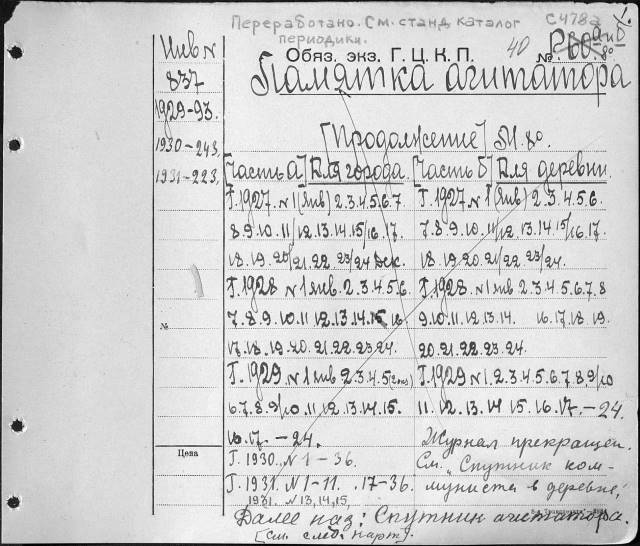 Переработано. См. станд. каталог С478а
периодики.
Обяз. экз. Г. Ц. К. П. 40 №
Памятка агитатора
[Продолжение] М. 80.
Инв N
837
1929-93.
1930-243,
1931-223,
[Часть а] Для города. [Часть б] Для деревни.
Г. 1927. N 1 (янв) 2.3.4.5.6.7. Г. 1927. N 1 (янв) 2.3.4.5.6.
8.9.10.11/12.13.14.15/16.17. 7.8.9.10.11/12.13.14.15/16.17.
18.19.20/21.22.23/24 Дек. 18.19.20.21/22.23/24.
Г. 1928 N 1 янв. 2.3.4.5.6. Г. 1928. N 1 янв 2.3.4.5.6.7.8
7.8.9.10.11.12.13.14.15.16. 9.10.11.12.13.14. 16.17.18.19.
№
17.18.19.20.21.22.23.24. 20.21.22.23.24.
Г. 1929 N 1 янв 2.3.4.5 (2 экз) Г. 1929 N 1.2.3.4.5.6.7.8.9/10
6.7.8.9/10.11.12.13.14.15. 11.12.13.14 15.16.17.-24.
16.17.-24. Журнал прекращен.
Цена
Г. 1930. N 1-36. См. „Спутник ком-
Г. 1931. N 1-11. .17-36. муниста в деревне"
1931. N 13,14,15,
Далее наз: Спутник агитатора.
[см. след. карт].